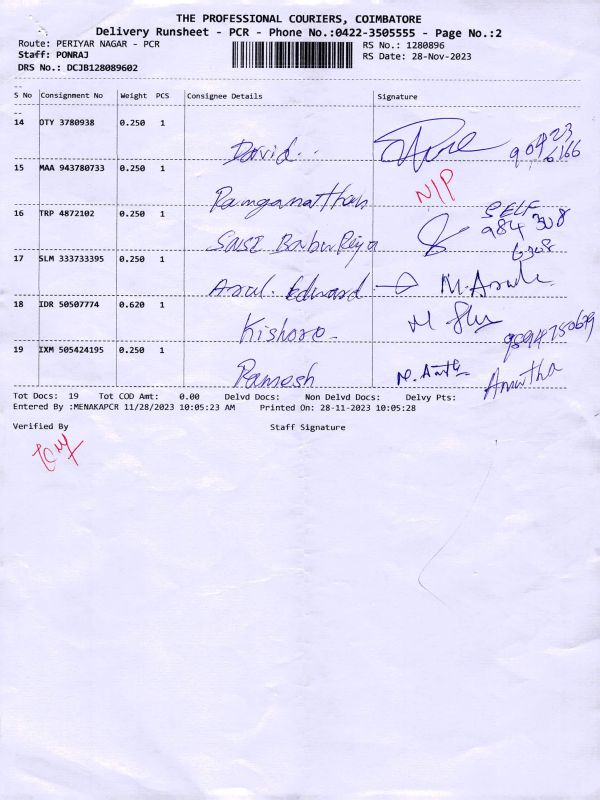 THE PROFESSIONAL COURIERS, COIMBATORE
Delivery Runsheet - PCR - Phone No.:0422-3505555 - Page No.:2
Route: PERIYAR NAGAR - PCR RS No.: 1280896
Staff: PONRAJ RS Date: 28-Nov-2023
DRS No.: DCJB128089602
S No Consignment No Weight PCS Consignee Details Signature
14 OTY 3780938 0.250 1 David..
15 MAA 943780733 0.250 1 Ramganathan N/P
16 TRP 4872102 0.250 1 SELF
17 SLM 333733395 0.250 1 Arul. Edward
18 IDR 50507774 0.620 1 Kishore
19 IXM 505424195 0.250 1 Ramesh Amutha
Tot Docs: 19 Tot COD Amt: 0.00 Delvd Docs: Non Delvd Docs: Delvy Pts:
Entered By :MENAKAPCR 11/28/2023 10:05:23 AM Printed On: 28-11-2023 10:05:28
Verified By Staff Signature